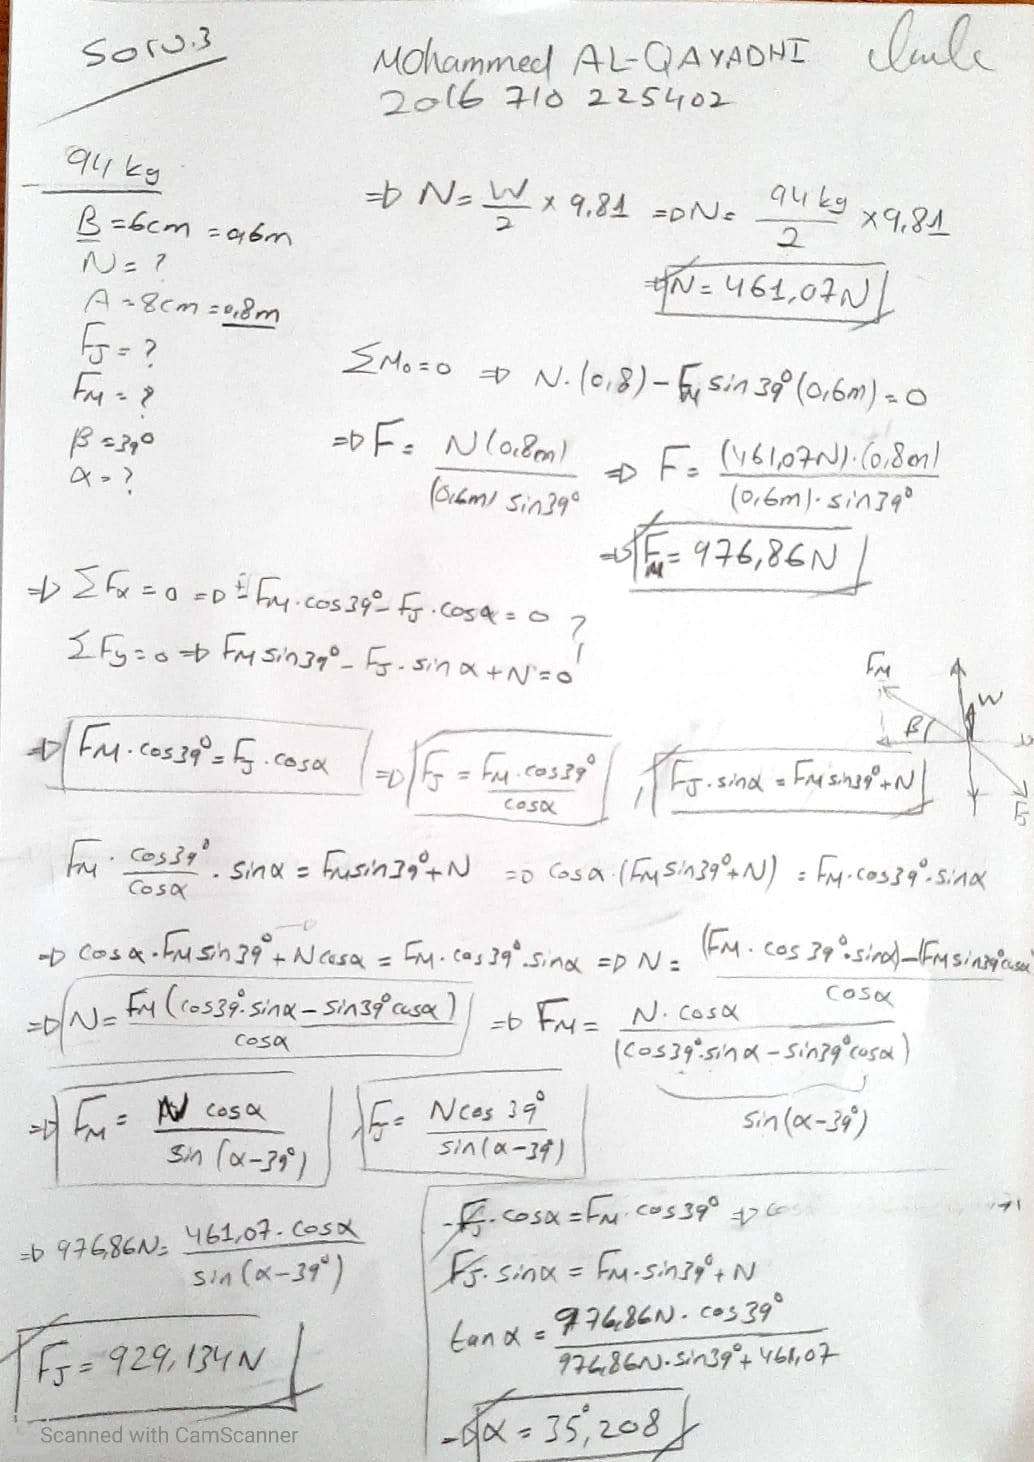 Soru.3
Mohammed AL-QAYADHI
2016 710 225402
94 kg
B = 6cm = 0,6m
N = ?
A = 8cm = 0,8m
FJ = ?
FM = ?
β = 39°
α = ?
⇒ N = W/2 × 9,81 ⇒ N = 94 kg/2 × 9,81
⇒ N = 461,07N
ΣMo = 0 ⇒ N.(0,8) - FM sin 39° (0,6m) = 0
⇒ F = N(0,8m)/(0,6m) sin39° ⇒ F = (461,07N).(0,8m)/(0,6m).sin39°
⇒ FM = 976,86N
⇒ ΣFx = 0 ⇒ ± FM.cos39° - FJ.cosα = 0 ?
ΣFy = 0 ⇒ FM sin39° - FJ.sinα + N = 0
FM
W
β
FJ
⇒ FM.cos39° = FJ.cosα ⇒ FJ = FM.cos39°/cosα , FJ.sinα = FM sin39° + N
FM . cos39°/cosα . sinα = FM sin39° + N ⇒ cosα.(FM sin39° + N) = FM.cos39°.sinα
⇒ cosα.FM sin39° + N cosα = FM.cos39°.sinα ⇒ N = (FM.cos39°.sinα) - (FM sin39° cosα)/cosα
⇒ N = FM(cos39°.sinα - sin39° cosα)/cosα ⇒ FM = N.cosα/(cos39°.sinα - sin39° cosα)
sin(α-39°)
⇒ FM = N cosα/sin(α-39°) , FJ = N cos 39°/sin(α-39°)
⇒ 976,86N = 461,07.cosα/sin(α-39°)
FJ = 929,134N
- FJ.cosα = FM.cos39° ⇒
FJ.sinα = FM.sin39° + N
tanα = 976,86N.cos39°/976,86N.sin39° + 461,07
⇒ α = 35°,208
Scanned with CamScanner